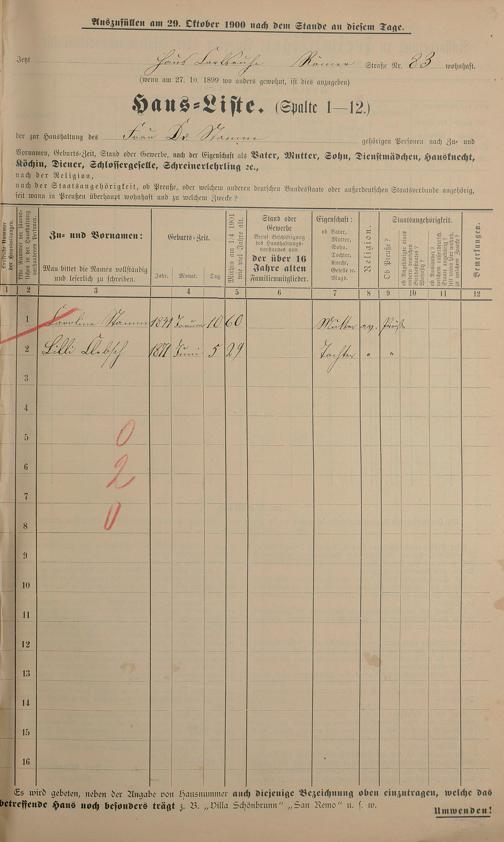 Auszufüllen am 29. Oktober 1900 nach dem Stande an diesem Tage.
Jetzt Haus Carlsruhe Römer Straße Nr. 83 wohnhaft.
(wenn am 27. 10. 1899 wo anders gewohnt, ist dies anzugeben)
Haus-Liste. (Spalte 1—12.)
der zur Haushaltung des Frau Dr Stamm gehörigen Personen nach Zu- und
Vornamen, Geburts-Zeit, Stand oder Gewerbe, nach der Eigenschaft als Vater, Mutter, Sohn, Dienstmädchen, Hausknecht,
Köchin, Diener, Schlossergeselle, Schreinerlehrling 2c.,
nach der Religion,
nach der Staatsangehörigkeit, ob Preuße, oder welchem anderen deutschen Bundesstaate oder außerdeutschen Staatsverbande angehörig,
seit wann in Preußen überhaupt wohnhaft und zu welchem Zwecke?
Zu- und Vornamen:
Man bittet die Namen vollständig
und leserlich zu schreiben.
Geburts-Zeit.
Jahr. Monat. Tag
Stand oder
Gewerbe
der über 16
Jahre alten
Familienmitglieder.
Eigenschaft:
ob Vater,
Mutter,
Sohn,
Tochter,
Knecht,
Geselle o.
Magd.
Religion.
Ob Preuße?
Staatsangehörigkeit.
Bemerkungen.
1 2 3 4 5 6 7 8 9 10 11 12
1 Caroline Stamm 10 60 Mutter ev. Preuße
2 Lilli 1871 Juni 5 29 Tochter " "
3
4
5 0
6 2
7
8 0
9
10
11
12
13
14
15
16
Es wird gebeten, neben der Angabe von Hausnummer auch diejenige Bezeichnung oben einzutragen, welche das
betreffende Haus noch besonders trägt z. B. „Villa Schönbrunn" „San Remo" u. s. w.
Umwenden!